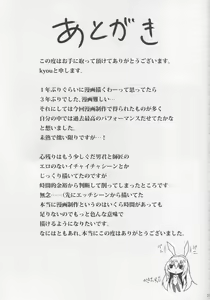 あとがき
この度はお手に取って頂けてありがとうございます。
kyouと申します。
1年ぶりぐらいに漫画描くわーって思ってたら
3年ぶりでした、漫画難しい…
それにしても今回漫画制作で得られたものが多く
自分の中では過去最高のパフォーマンスだせてたかな
と思いました。
未熟で拙い限りですが…！
心残りはもう少しぐだ男君と師匠の
エロのないイチャイチャシーンとか
じっくり描いてたのですが
時間的余裕から判断して削ってしまったところです。
無念……(先にエッチシーンから描いてた
本当に漫画制作というのはいくら時間があっても
足りないのでもっと色んな意味で
描けるようになりたいです。
なにはともあれ、本当にこの度はありがとうございました。